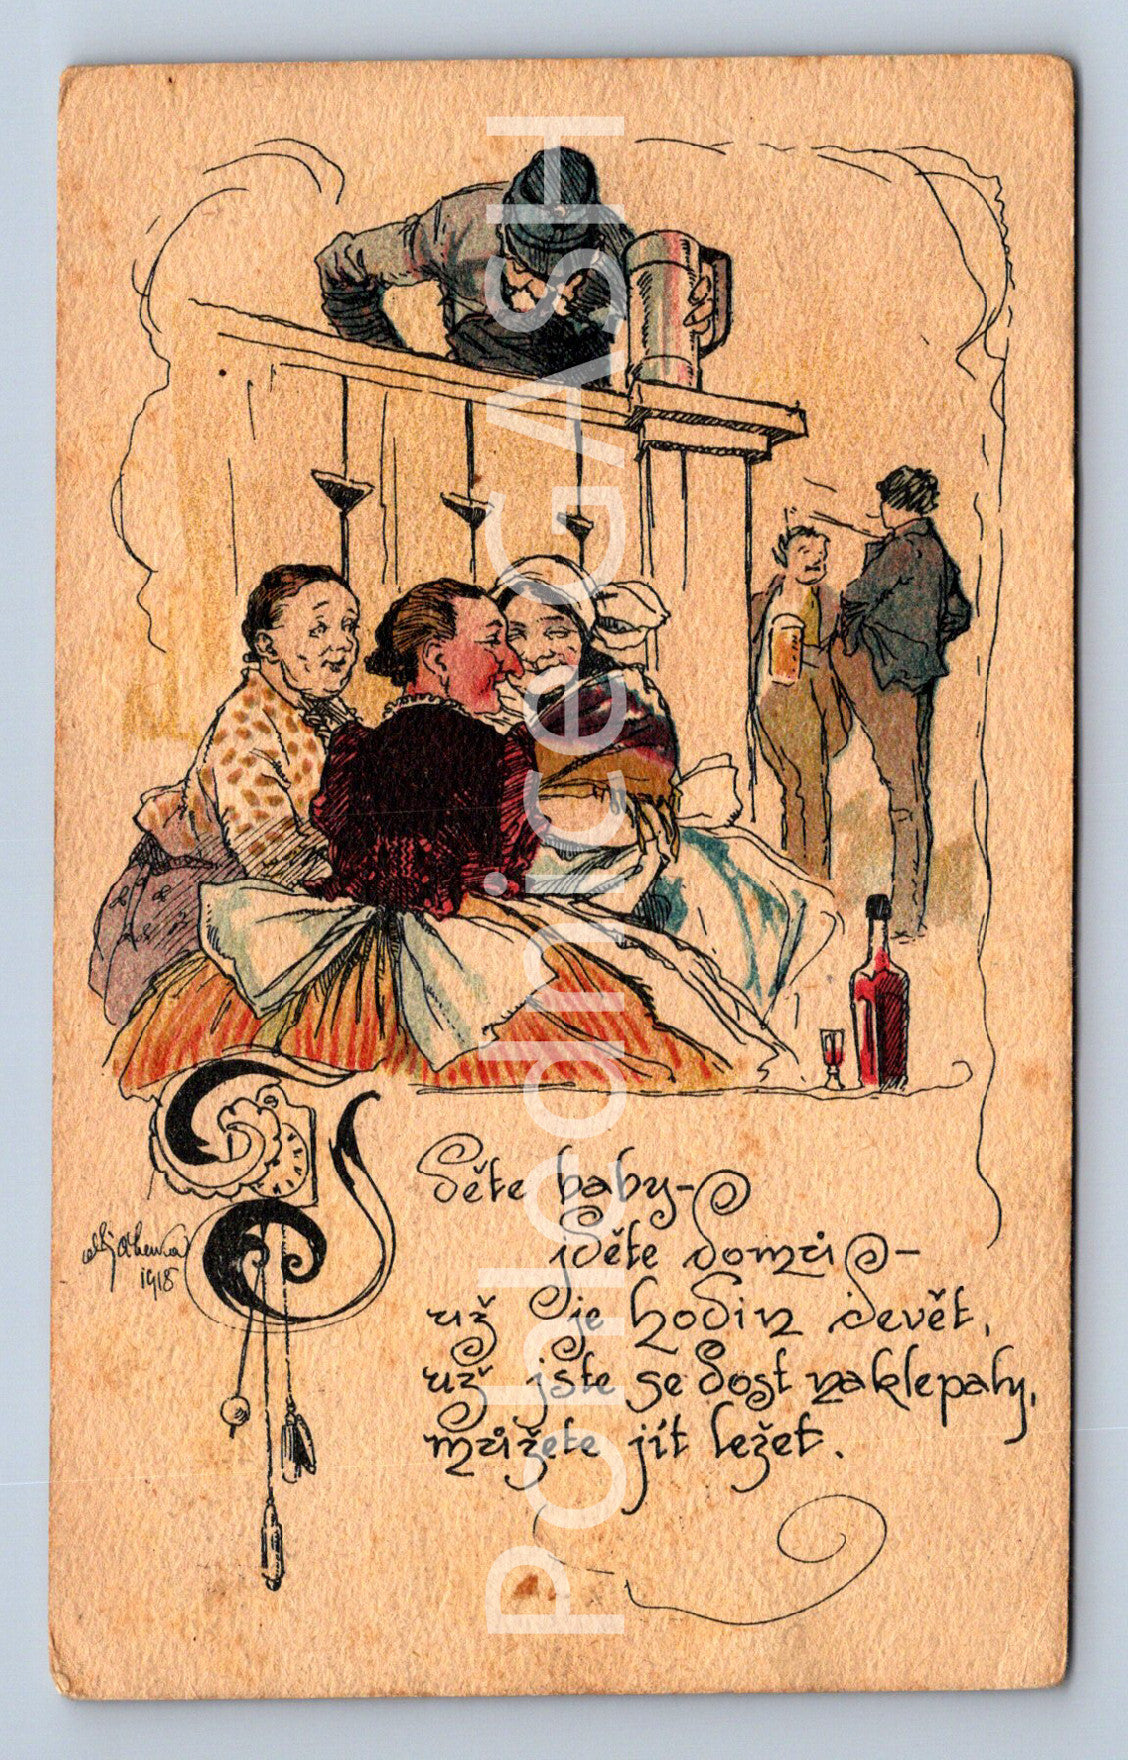 Iděte baby-
iděte domů-
už je hodin devět,
už jste se dost naklepaly,
můžete jít ležet.
1918
PohledniceGASH